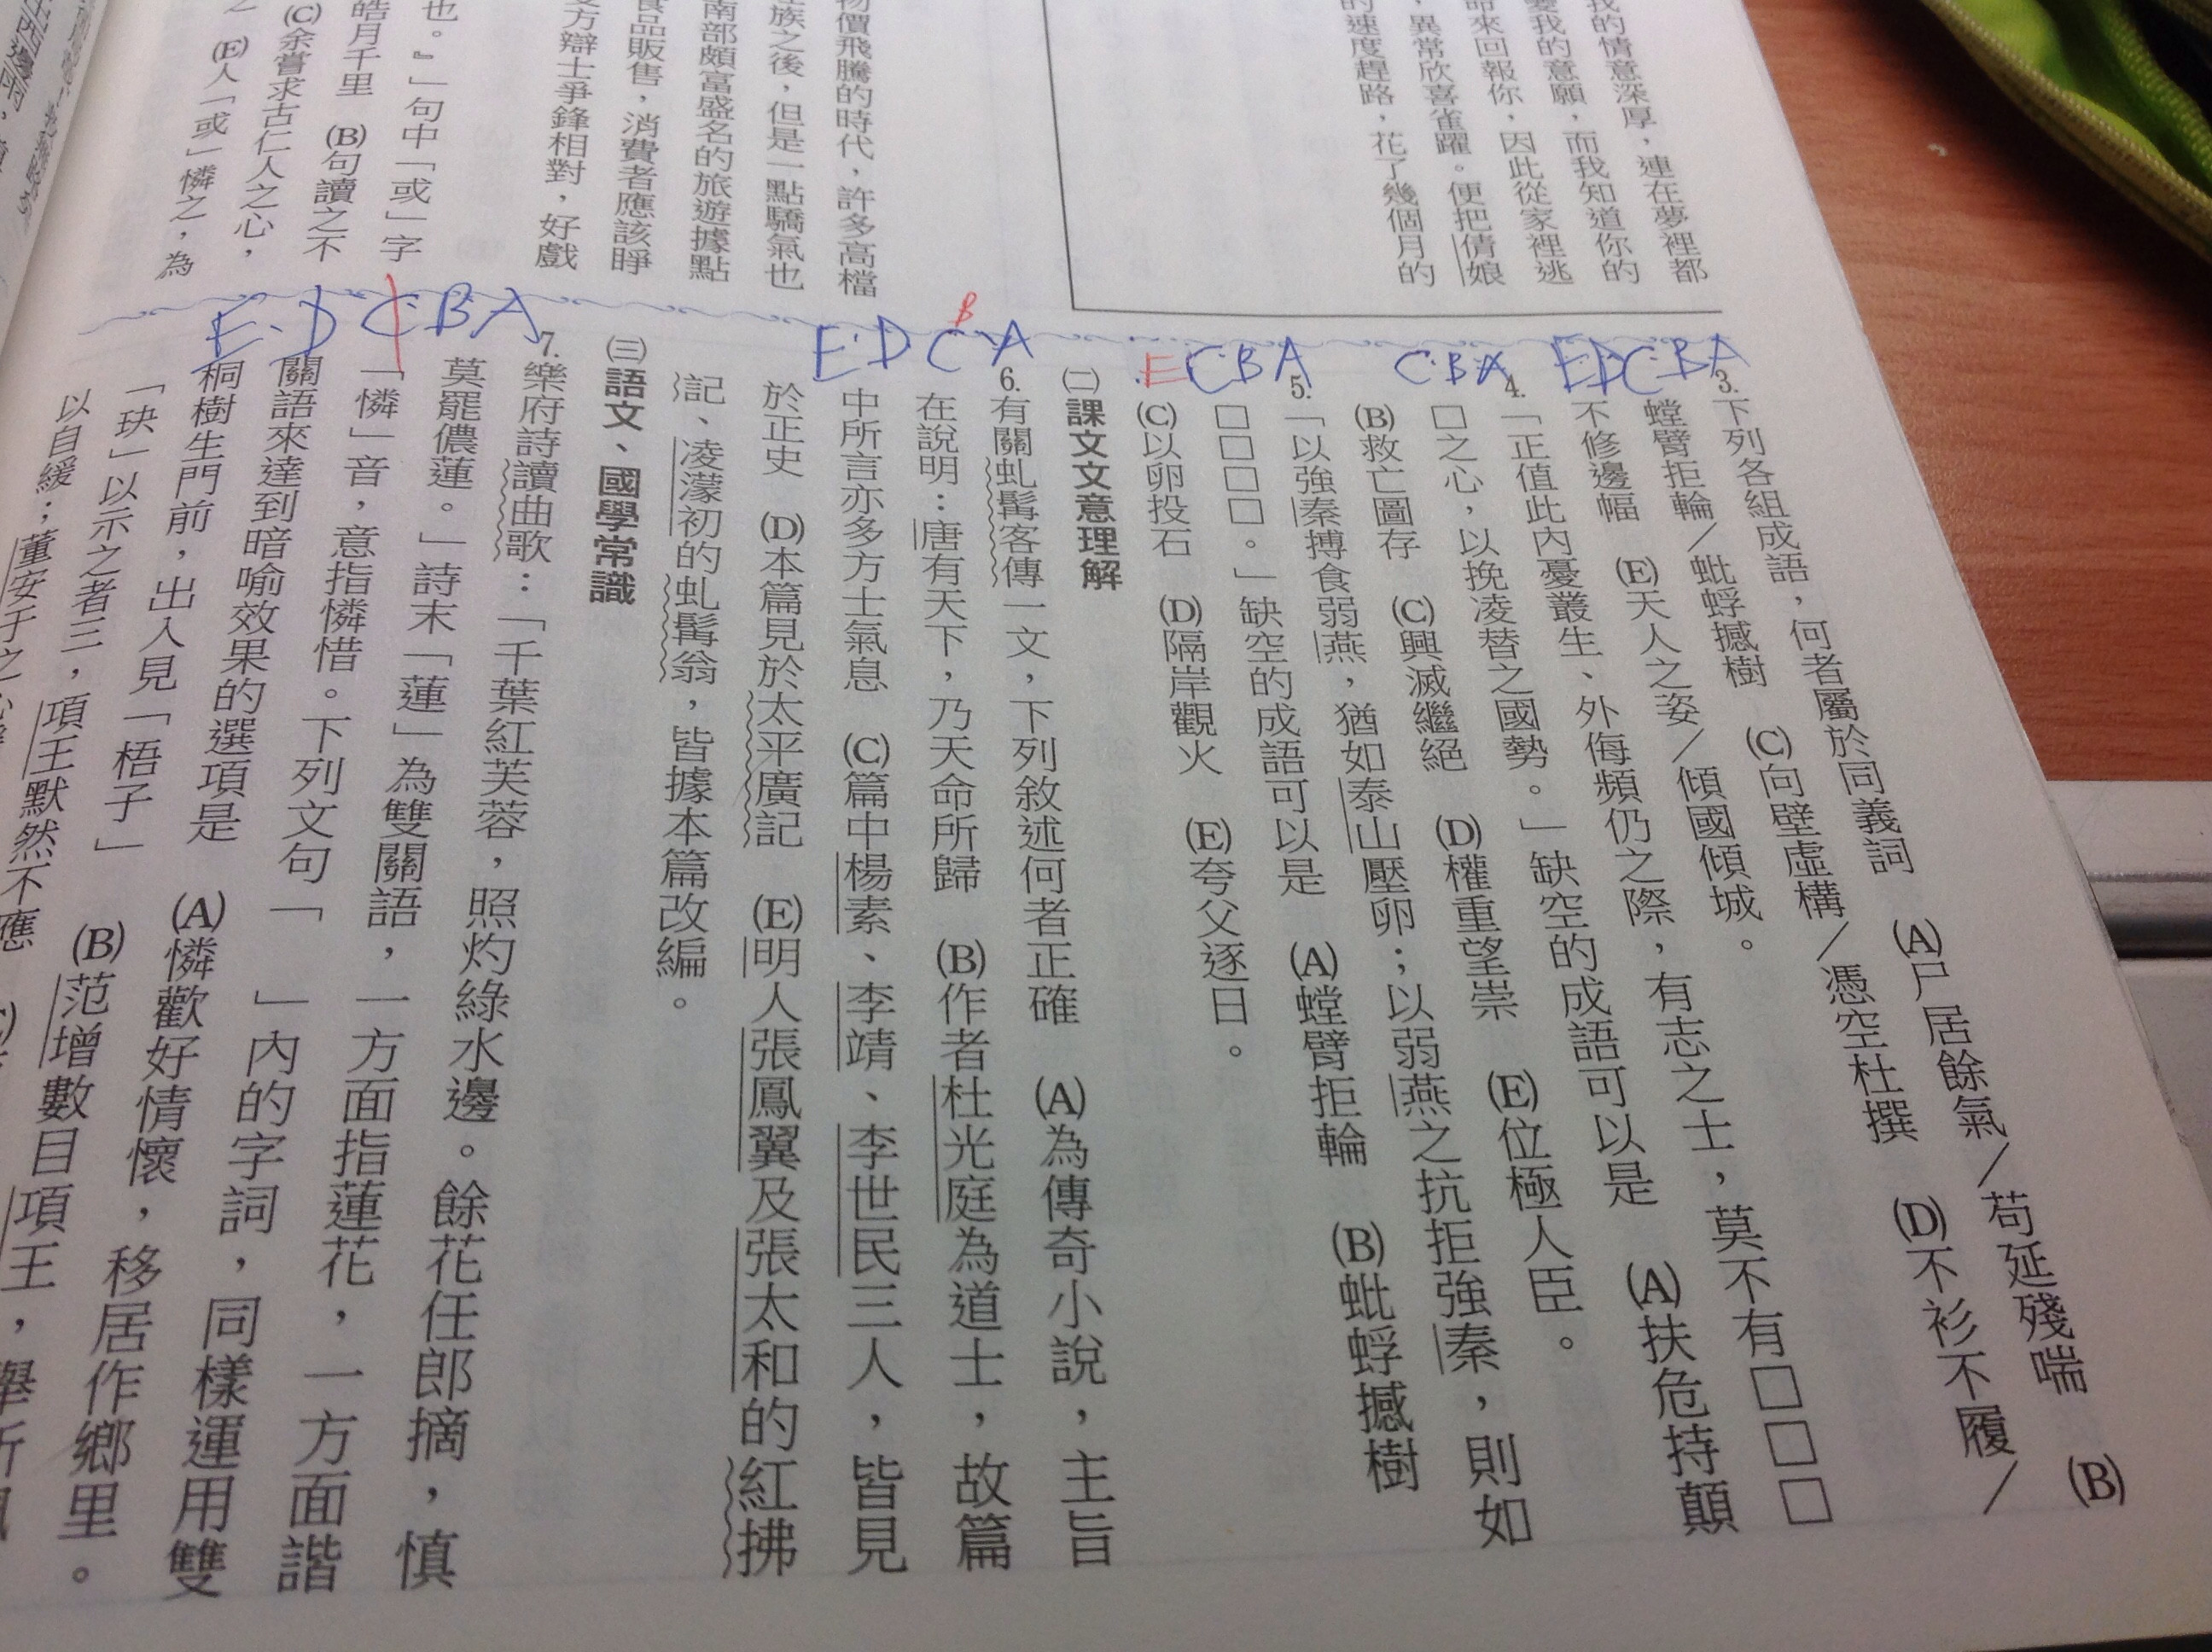 我的情意深厚，連在夢裡都
愛我的意願，而我知道你的
命來回報你，因此從家裡逃
，異常欣喜雀躍。便把倩娘
的速度趕路，花了幾個月的
物價飛騰的時代，許多高檔
族之後，但是一點驕氣也
南部頗富盛名的旅遊據點
食品販售，消費者應該睜
雙方辯士爭鋒相對，好戲
也。』」句中「或」字
皓月千里　(B)句讀之不
(C)余嘗求古仁人之心，
(E)人「或」憐之，為
EDCBA
3.下列各組成語，何者屬於同義詞　(A)尸居餘氣／苟延殘喘　(B)
螳臂拒輪／蚍蜉撼樹　(C)向壁虛構／憑空杜撰　(D)不衫不履／
不修邊幅　(E)天人之姿／傾國傾城。
CBA
4.「正值此內憂叢生、外侮頻仍之際，有志之士，莫不有□□□
□之心，以挽凌替之國勢。」缺空的成語可以是　(A)扶危持顛
(B)救亡圖存　(C)興滅繼絕　(D)權重望崇　(E)位極人臣。
ECBA
5.「以強秦搏食弱燕，猶如泰山壓卵；以弱燕之抗拒強秦，則如
□□□□。」缺空的成語可以是　(A)螳臂拒輪　(B)蚍蜉撼樹
(C)以卵投石　(D)隔岸觀火　(E)夸父逐日。
㈡課文文意理解
EDCBA
6.有關虬髯客傳一文，下列敘述何者正確　(A)為傳奇小說，主旨
在說明：唐有天下，乃天命所歸　(B)作者杜光庭為道士，故篇
中所言亦多方士氣息　(C)篇中楊素、李靖、李世民三人，皆見
於正史　(D)本篇見於太平廣記　(E)明人張鳳翼及張太和的紅拂
記、凌濛初的虬髯翁，皆據本篇改編。
㈢語文、國學常識
E.DCBA
7.樂府詩讀曲歌：「千葉紅芙蓉，照灼綠水邊。餘花任郎摘，慎
莫罷儂蓮。」詩末「蓮」為雙關語，一方面指蓮花，一方面諧
「憐」音，意指憐惜。下列文句「　」內的字詞，同樣運用雙
關語來達到暗喻效果的選項是　(A)憐歡好情懷，移居作鄉里。
桐樹生門前，出入見「梧子」　(B)范增數目項王，舉所佩
「玦」以示之者三，項王默然不應
以自緩；董安于之心